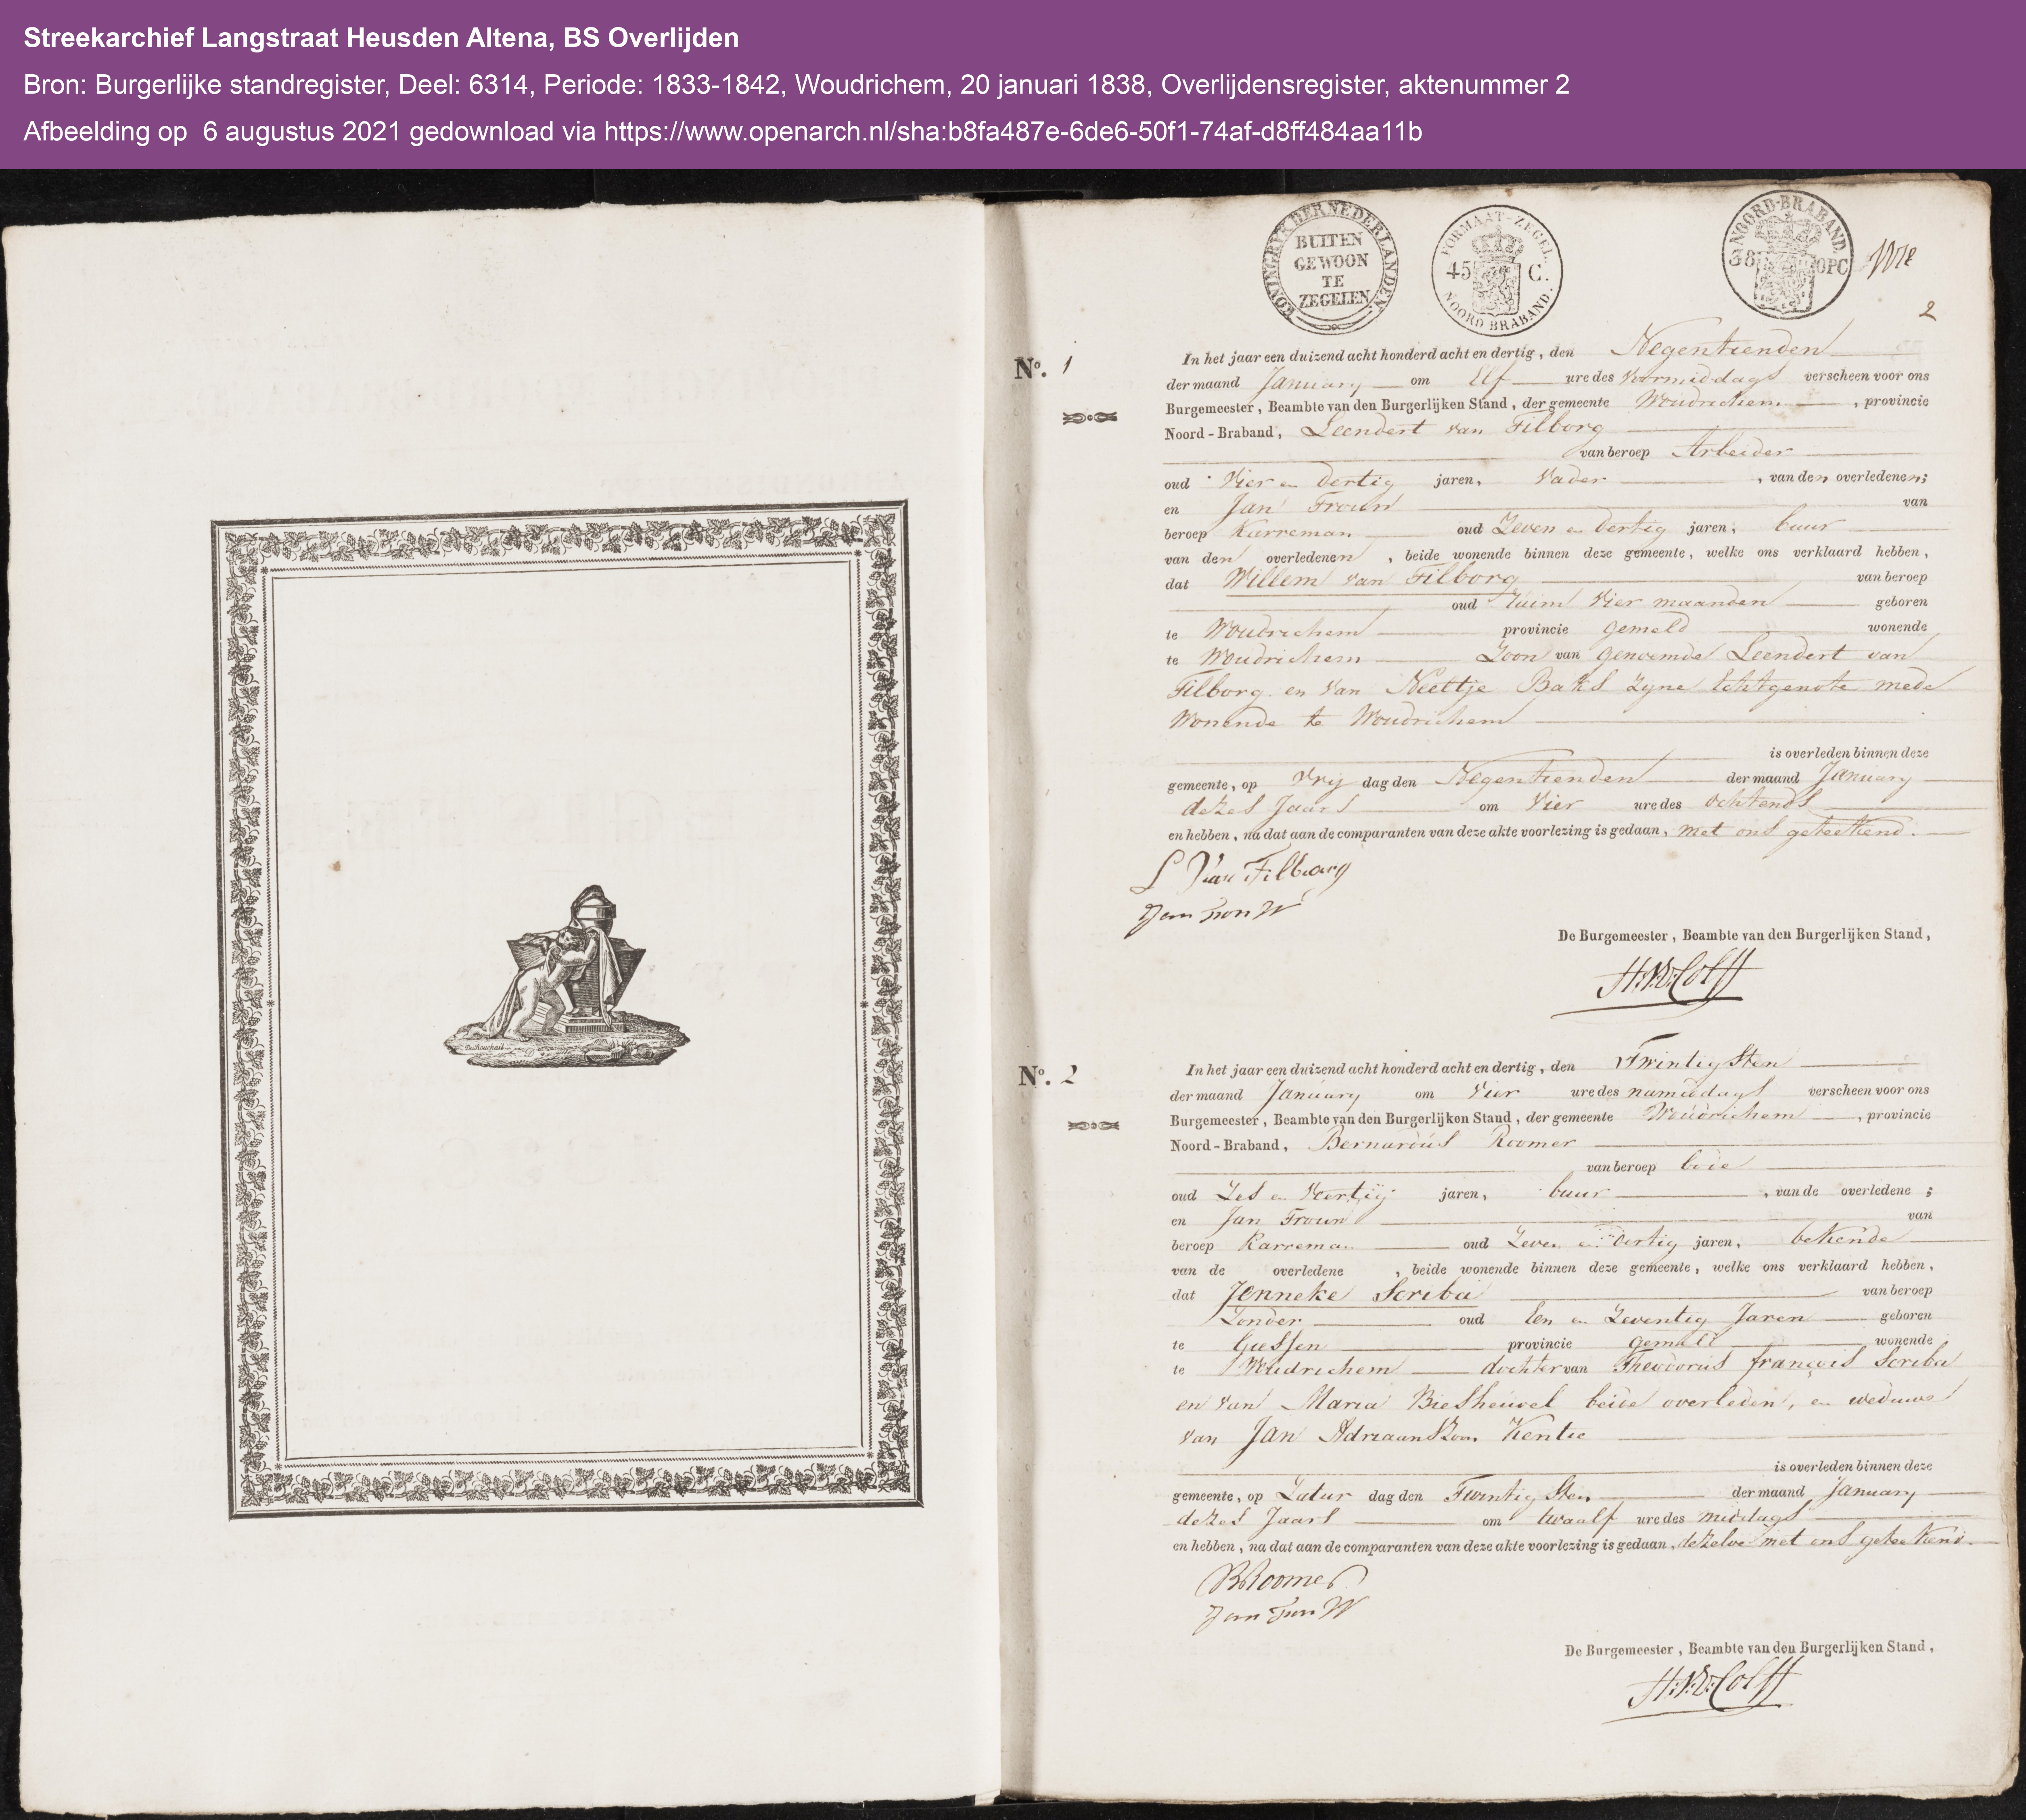 Streekarchief Langstraat Heusden Altena, BS Overlijden
Bron: Burgerlijke standregister, Deel: 6314, Periode: 1833-1842, Woudrichem, 20 januari 1838, Overlijdensregister, aktenummer 2
Afbeelding op 6 augustus 2021 gedownload via https://www.openarch.nl/sha:b8fa487e-6de6-50f1-74af-d8ff484aa11b
KONINGRYK DER NEDERLANDEN
BUITEN
GEWOON
TE
ZEGELEN
FORMAAT-ZEGEL.
45 C.
NOORD BRABAND.
NOORD-BRABAND
38 OPC
2
No. 1
In het jaar een duizend acht honderd acht en dertig, den Negentienden
der maand January om Elf ure des Voormiddags verscheen voor ons
Burgemeester, Beambte van den Burgerlijken Stand, der gemeente Woudrichem, provincie
Noord-Braband, Leendert van Tilborg
van beroep Arbeider
oud Vier en dertig jaren, Vader, van den overledenen;
en Jan Trouw van
beroep Karreman oud Zeven en dertig jaren, buur
van den overledenen, beide wonende binnen deze gemeente, welke ons verklaard hebben,
dat Willem van Tilborg van beroep
oud ruim Vier maanden geboren
te Woudrichem provincie gemeld wonende
te Woudrichem Zoon van genoemde Leendert van
Tilborg en van Neeltje Baks zyne Echtgenote mede
Wonende te Woudrichem
is overleden binnen deze
gemeente, op Vrij dag den Negentienden der maand January
dezes Jaars om Vier ure des Ochtends
en hebben, na dat aan de comparanten van deze akte voorlezing is gedaan, met ons geteekend.
L Van Tilborg
Jan TrouW
De Burgemeester, Beambte van den Burgerlijken Stand,
No. 2
In het jaar een duizend acht honderd acht en dertig, den Twintigsten
der maand January om Vier ure des namiddags verscheen voor ons
Burgemeester, Beambte van den Burgerlijken Stand, der gemeente Woudrichem, provincie
Noord-Braband, Bernardus Roomer
van beroep bode
oud Zes en Veertig jaren, buur, van de overledene;
en Jan Trouw van
beroep Karreman oud Zeven en dertig jaren, bekende
van de overledene, beide wonende binnen deze gemeente, welke ons verklaard hebben,
dat Jenneke Scriba van beroep
Zonder oud Een en Zeventig Jaren geboren
te Giessen provincie gemeld wonende
te Woudrichem dochter van Theodorus françois Scriba
en van Maria Biesheuvel beide overleden, en weduwe
van Jan Adriaanszoon Kentie
is overleden binnen deze
gemeente, op Zatur dag den Twintigsten der maand January
dezes Jaars om twaalf ure des middags
en hebben, na dat aan de comparanten van deze akte voorlezing is gedaan, dezelve met ons geteekend.
BRoomer
Jan TrouW
De Burgemeester, Beambte van den Burgerlijken Stand,